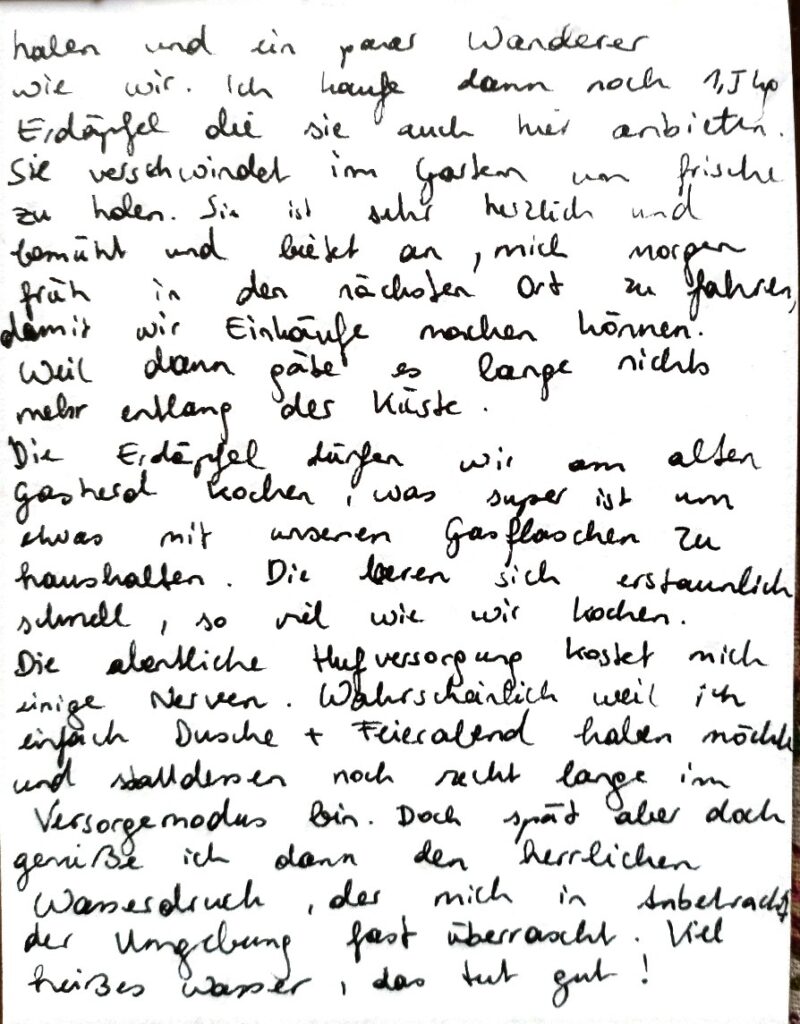 halten und ein paar Wanderer
wie wir. Ich kaufe dann noch 1,5 kg
Erdäpfel die sie auch hier anbieten.
Sie verschwindet im Garten um frische
zu holen. Sie ist sehr herzlich und
bemüht und bietet an, mich morgen
früh in den nächsten Ort zu fahren,
damit wir Einkäufe machen können.
Weil dann gäbe es lange nichts
mehr entlang der Küste.
Die Erdäpfel dürfen wir am alten
Gasherd kochen, was super ist um
etwas mit unseren Gasflaschen zu
haushalten. Die leeren sich erstaunlich
schnell, so viel wie wir kochen.
Die abendliche Hufversorgung kostet mich
einige Nerven. Wahrscheinlich weil ich
einfach Dusche + Feierabend haben möchte
und stattdessen noch recht lange im
Versorgemodus bin. Doch spät aber doch
genieße ich dann den herrlichen
Wasserdruck, der mich in Anbetracht
der Umgebung fast überrascht. Viel
heißes Wasser, das tut gut!